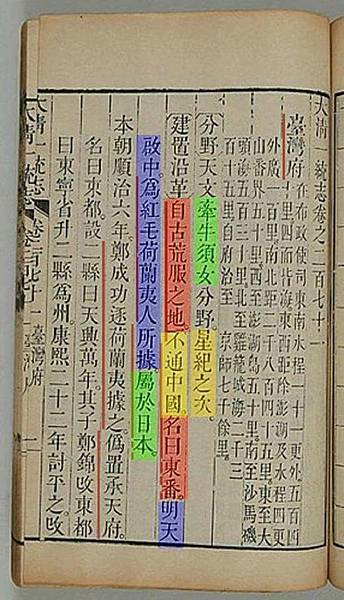 大清一統志卷之二百七十一
臺灣府 在布政使司東南水程一十一更外五百四
十里四面皆海東西距除澎湖及水程四更
外廣一百里南北距二千八百四十五里東至大
山番界五十里西至澎湖島五十里南至沙馬磯
頭海五百三十里北至雞籠城海二千三
百十五里自府治至京師七千餘里
分野天文牽牛須女分野星紀之次
建置沿革自古荒服之地。不通中國。名曰東番。明天
啟中。為紅毛荷蘭夷人所據。屬於日本。
本朝順治六年鄭成功逐荷蘭夷據之。偽置承天府。
名曰東都。設二縣曰天興萬年。其子鄭錦改東都
曰東寧省升二縣為州。康熙二十二年討平之。改
大清一統志
臺灣府